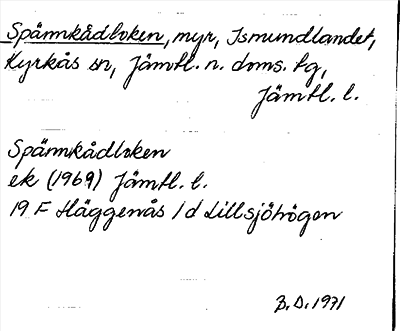 Spännkådloken, myr, Ismundlandet,
Kyrkås sn, Jämtl. n. doms. tg,
Jämtl. l.
Spännkådloken
ek (1969) Jämtl. l.
19 F Häggenås 1 d Lillsjöhögen
B.D. 1971